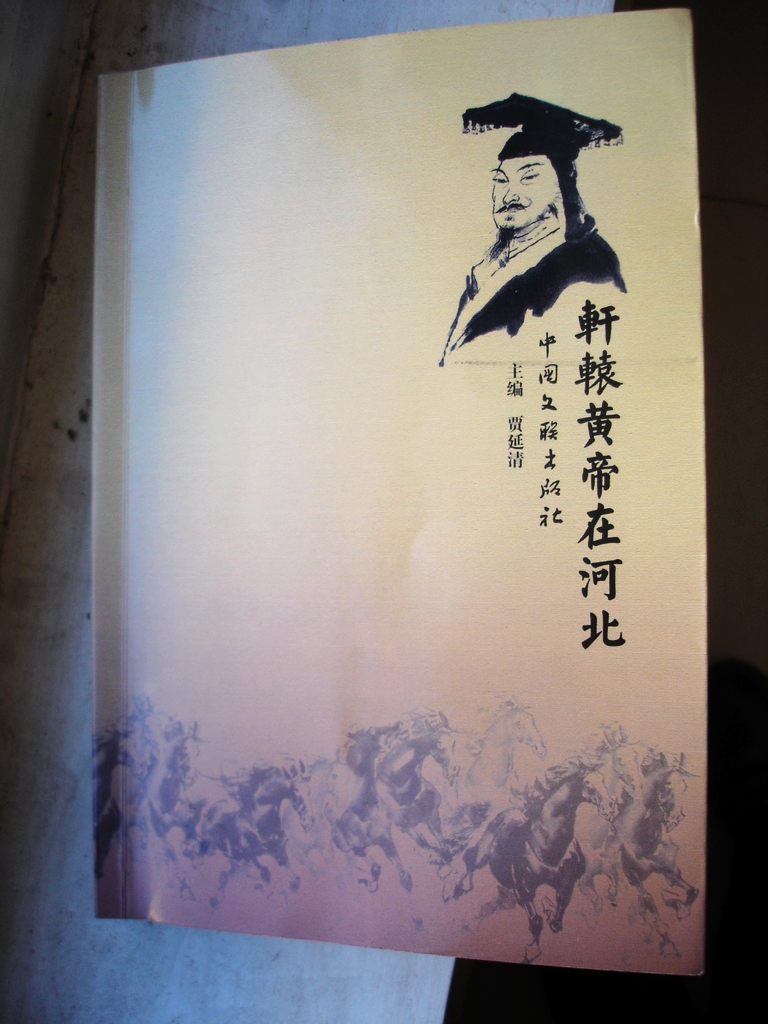 軒轅黄帝在河北
中国文联出版社
主编 贾延清